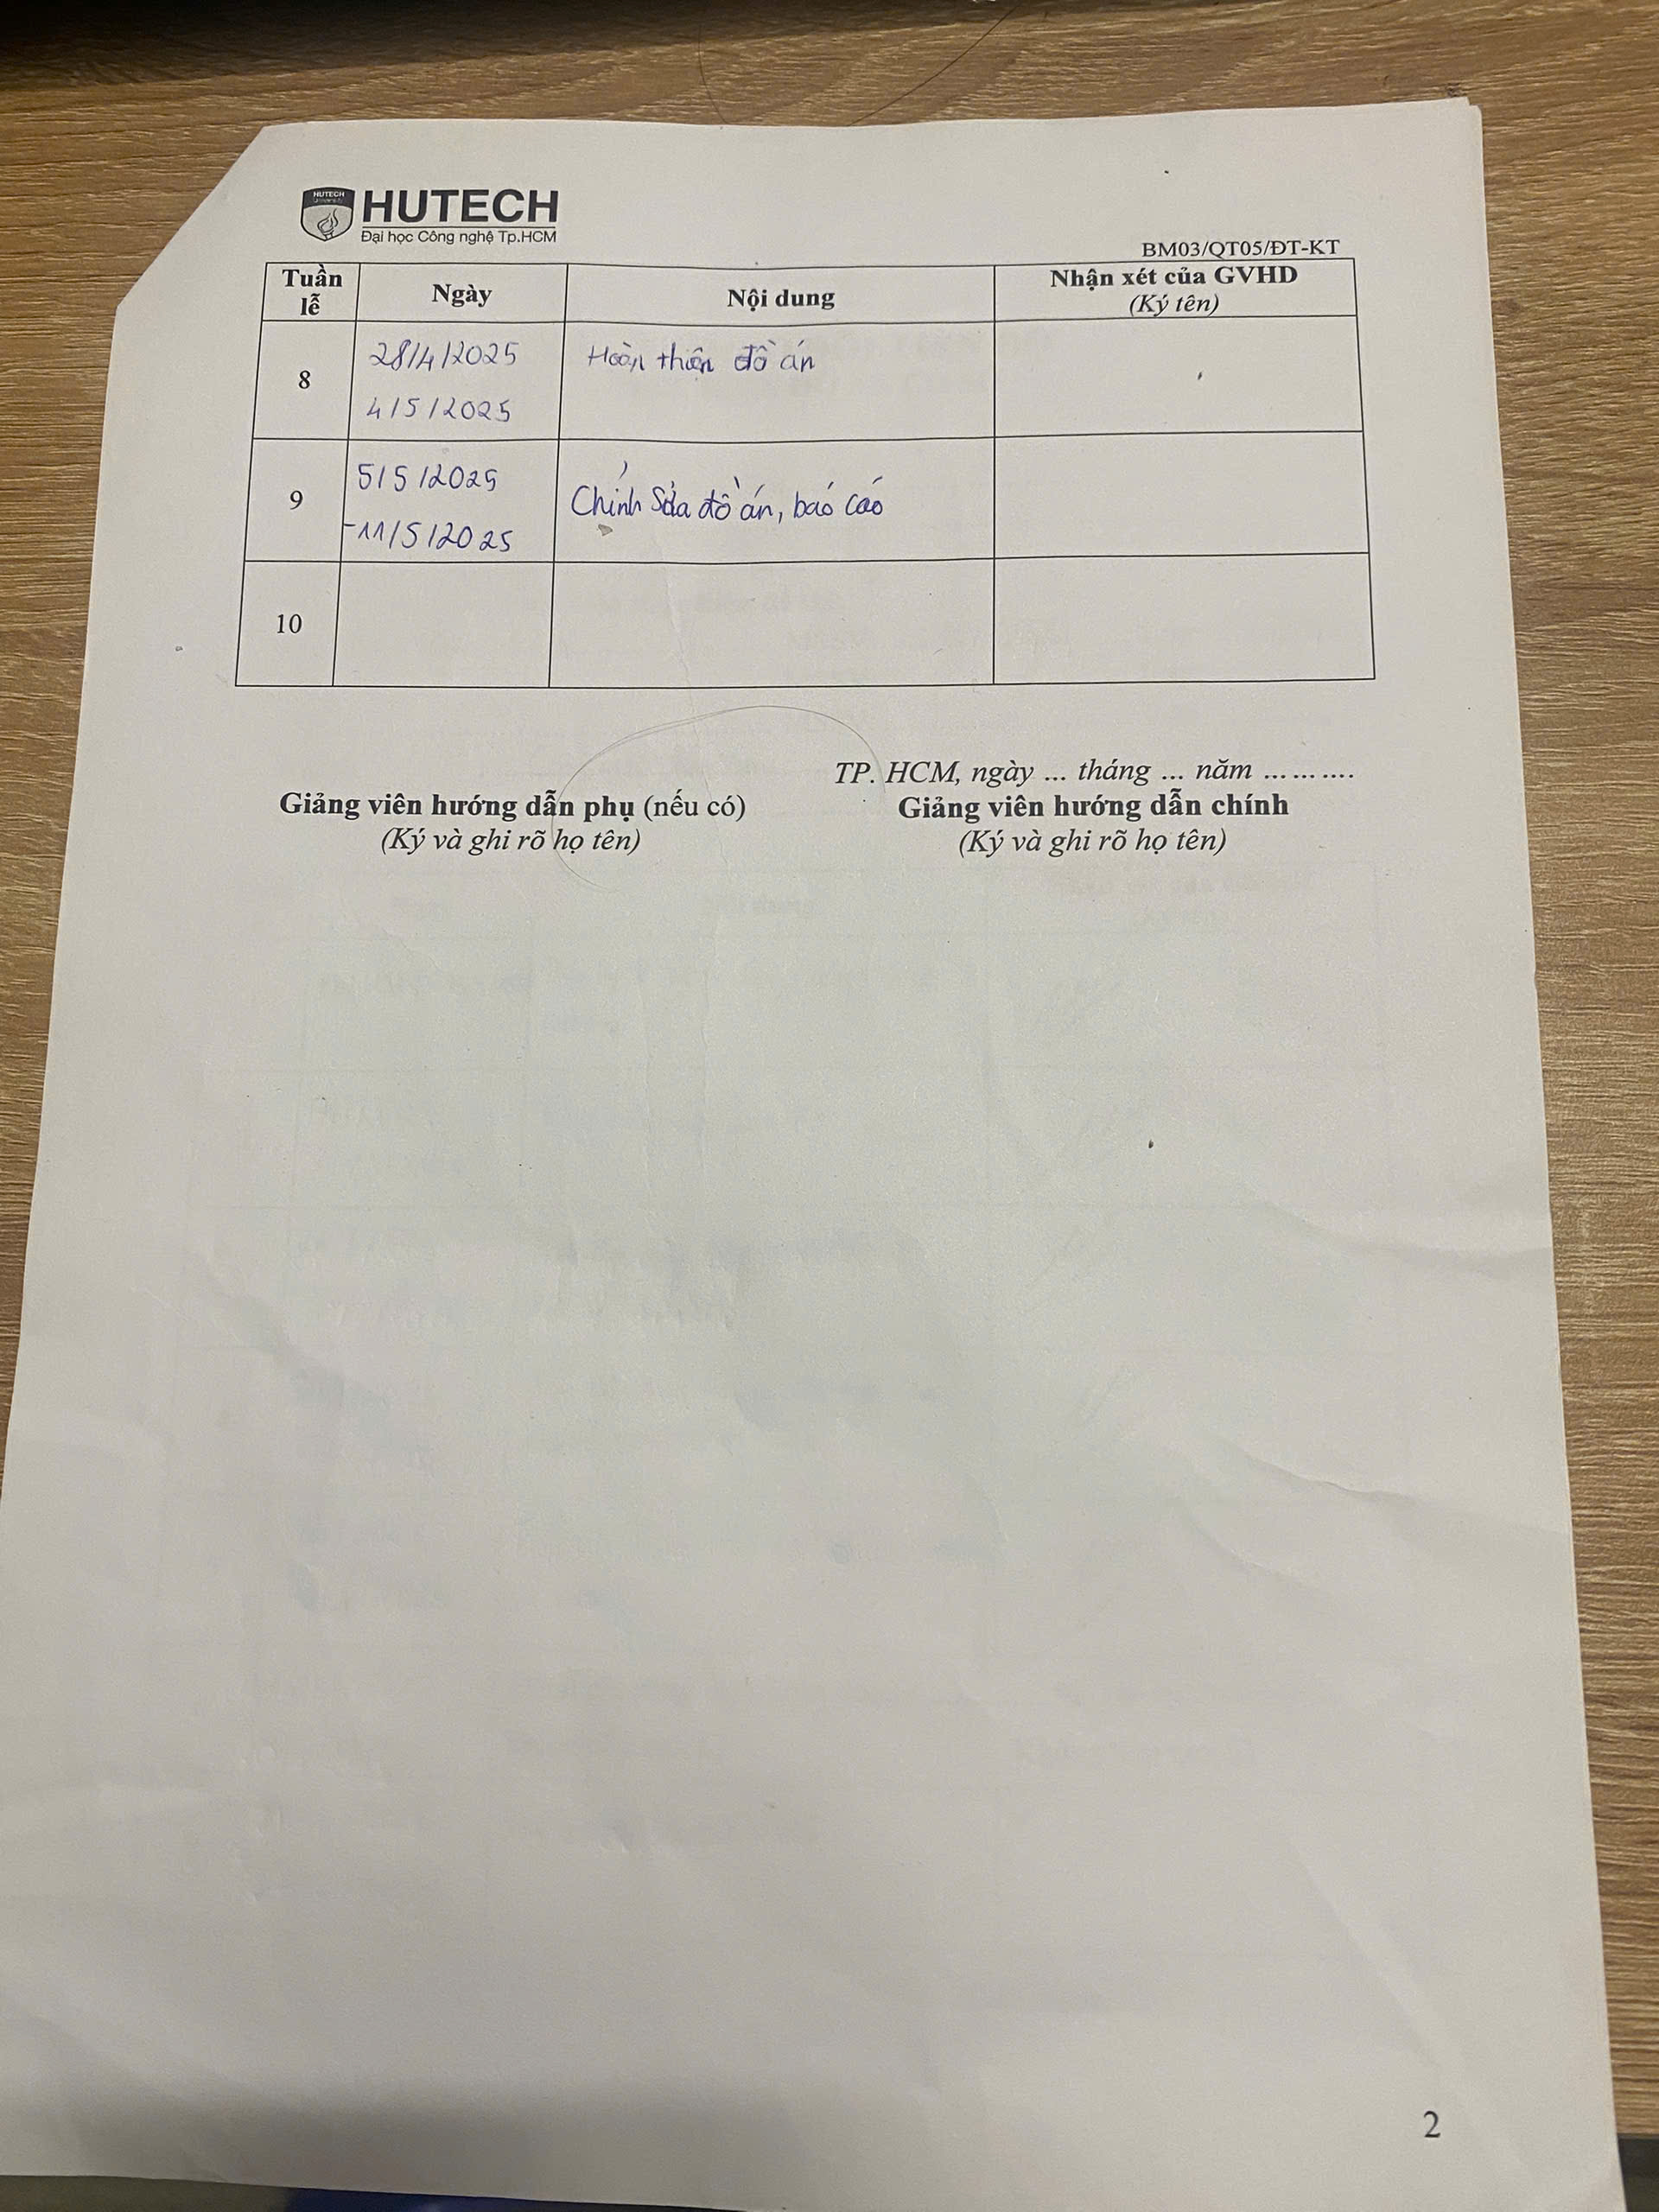 HUTECH
University
HUTECH
Đại học Công nghệ Tp.HCM
BM03/QT05/ĐT-KT
Tuần lễ
Ngày
Nội dung
Nhận xét của GVHD
(Ký tên)
8
28/4/2025
4/5/2025
Hoàn thiện đồ án
9
5/5/2025
-11/5/2025
Chỉnh sửa đồ án, báo cáo
10
TP. HCM, ngày ... tháng ... năm ... ... ....
Giảng viên hướng dẫn phụ (nếu có)
(Ký và ghi rõ họ tên)
Giảng viên hướng dẫn chính
(Ký và ghi rõ họ tên)
2